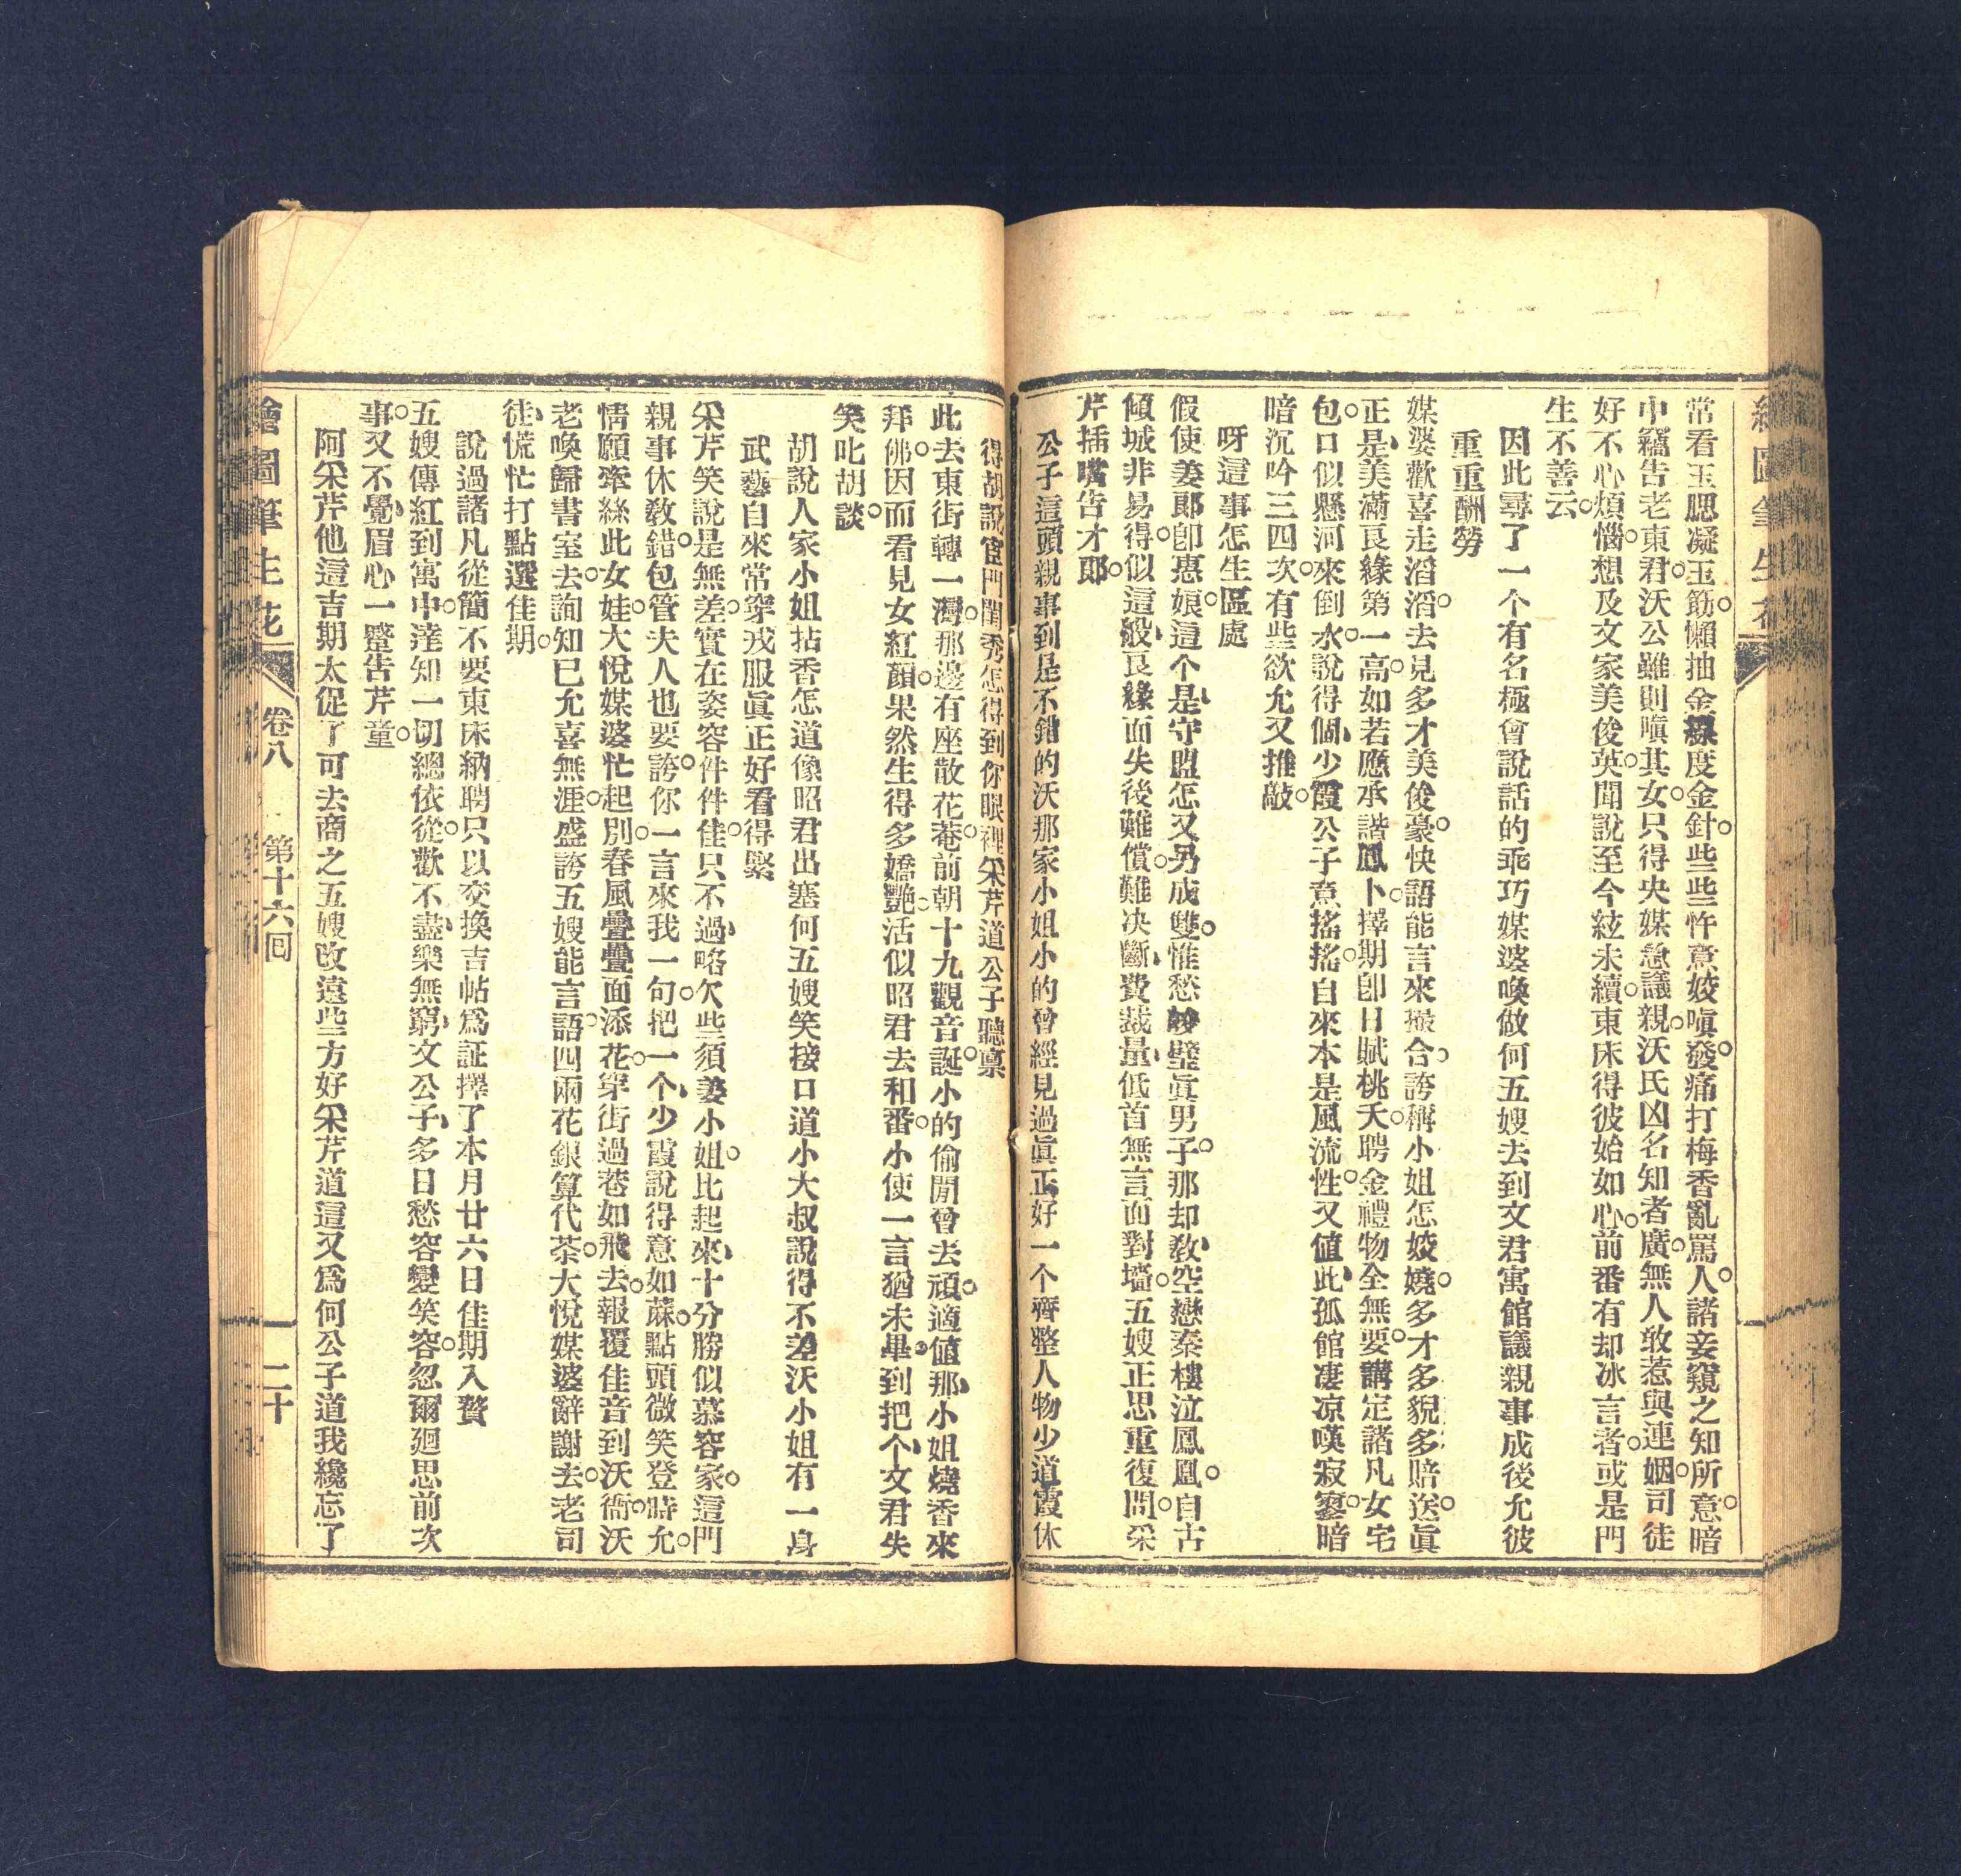 常看玉腮凝玉筯懶抽金線度金針些些忤意姣嗔發痛打梅香亂罵人諸妾窺之知所意暗
中竊告老東君沃公雖則嗔其女只得央媒急議親沃氏凶名知者廣無人敢惹與連姻司徒
好不心煩惱想及文家美俊英聞說至今絃未續東床得彼始如心前番有却冰言者或是門
生不善云
因此尋了一个有名極會說話的乖巧媒婆喚做何五嫂去到文君寓館議親事成後允彼
重重酬勞
媒婆歡喜走滔滔去見多才美俊豪快語能言來撮合誇稱小姐怎姣嬈多才多貌多賠送眞
正是美滿艮緣第一高如若應承諧鳳卜擇期卽日賦桃夭聘金禮物全無要講定諸凡女宅
包口似懸河來倒水說得個少霞公子意搖搖自來本是風流性又値此孤館凄凉嘆寂寥暗
暗沉吟三四次有些欲允又推敲
呀這事怎生區處
假使姜郞卽惠娘這个是守盟怎又另成雙惟愁璧眞男子那却敎空戀秦樓泣鳳凰自古
傾城非易得似這般艮緣面失後難償難决斷費裁量低首無言面對墻五嫂正思重復問采
芹插嘴告才郞
公子這頭親事到是不錯的沃那家小姐小的曾經見過眞正好一个齊整人物少道霞休
得胡說宦門閨秀怎得到你眼裡采芹道公子聽禀
此去東街轉一灣那邊有座散花菴前朝十九觀音誕小的偷閒曾去頑適値那小姐燒香來
拜佛因而看見女紅顏果然生得多嬌艷活似昭君去和番小使一言猶未畢到把个文君失
笑叱胡談
胡說人家小姐拈香怎道像昭君出塞何五嫂笑接口道小大叔說得不差沃小姐有一身
武藝自來常穿戎服眞正好看得緊
采芹笑說是無差實在姿容件件佳只不過略欠些須姜小姐比起來十分勝似慕容家這門
親事休敎錯包管夫人也要誇你一言來我一句把一个少霞說得意如蔴點頭微笑登時允
情願牽絲此女娃大悅媒婆忙起別春風疊疊面添花穿街過巷如飛去報覆佳音到沃衙沃
老喚歸書室去詢知已允喜無涯盛誇五嫂能言語四兩花銀算代茶大悅媒婆辭謝去老司
徒慌忙打點選佳期
說過諸凡從簡不要東床納聘只以交換吉帖爲証擇了本月廿六日佳期入贅
五嫂傳紅到寓中達知一切總依從歡不盡樂無窮文公子多日愁容變笑容忽爾廻思前次
事又不覺眉心一蹙告芹童
阿采芹他這吉期太促了可去商之五嫂改遠些方好采芹道這又爲何公子道我纔忘了
繪圖筆生花
卷八
第十六回
二十